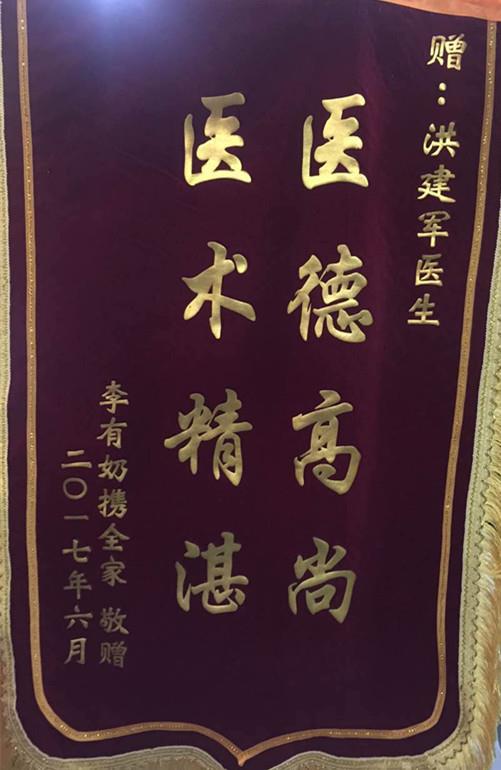 赠：洪建军医生
医德高尚
医术精湛
李有奶携全家 敬赠
二〇一七年六月